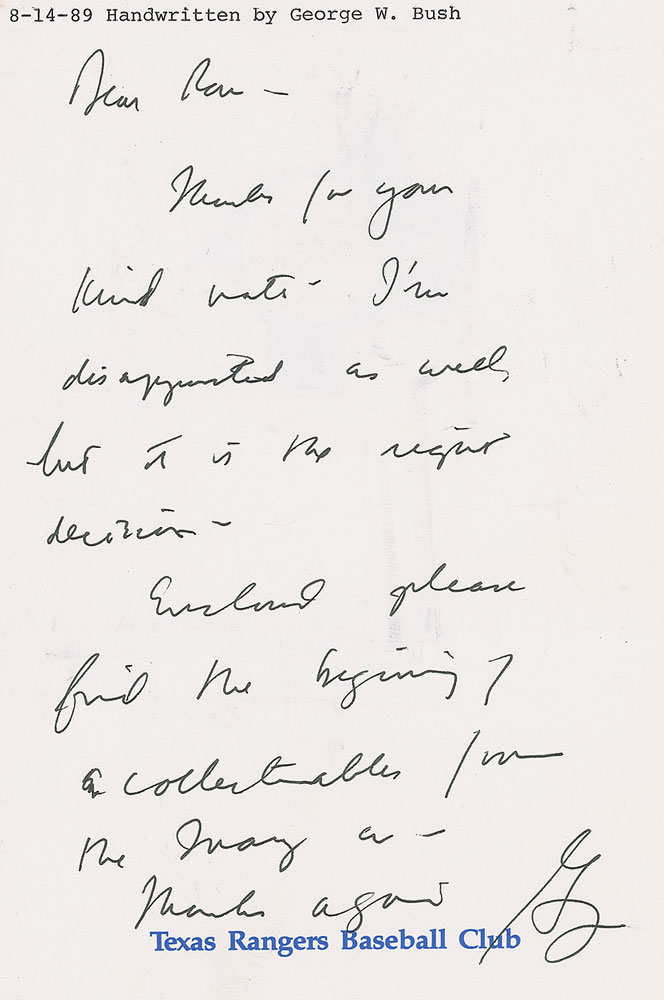 8-14-89 Handwritten by George W. Bush
Dear Ron -
Thanks for your
kind note - I'm
disappointed as well,
but it is the right
decision -
Enclosed please
find the begining of
a collectables from
the
Thanks again
Texas Rangers Baseball Club